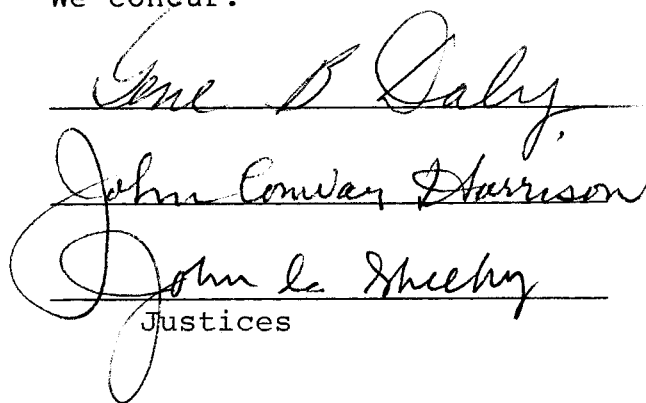 We concur:
Gene B Daly
John Conway Harrison
John C Sheehy
Justices